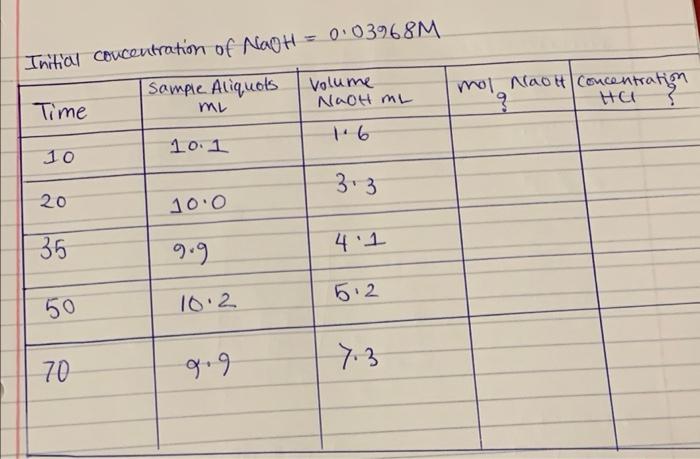 Initial concentration of NaOH = 0.03968M
Time
Sample Aliquots mL
Volume NaOH mL
mol NaOH ?
Concentration HCl ?
10 10.1 1.6
20 10.0 3.3
35 9.9 4.1
50 10.2 5.2
70 9.9 7.3